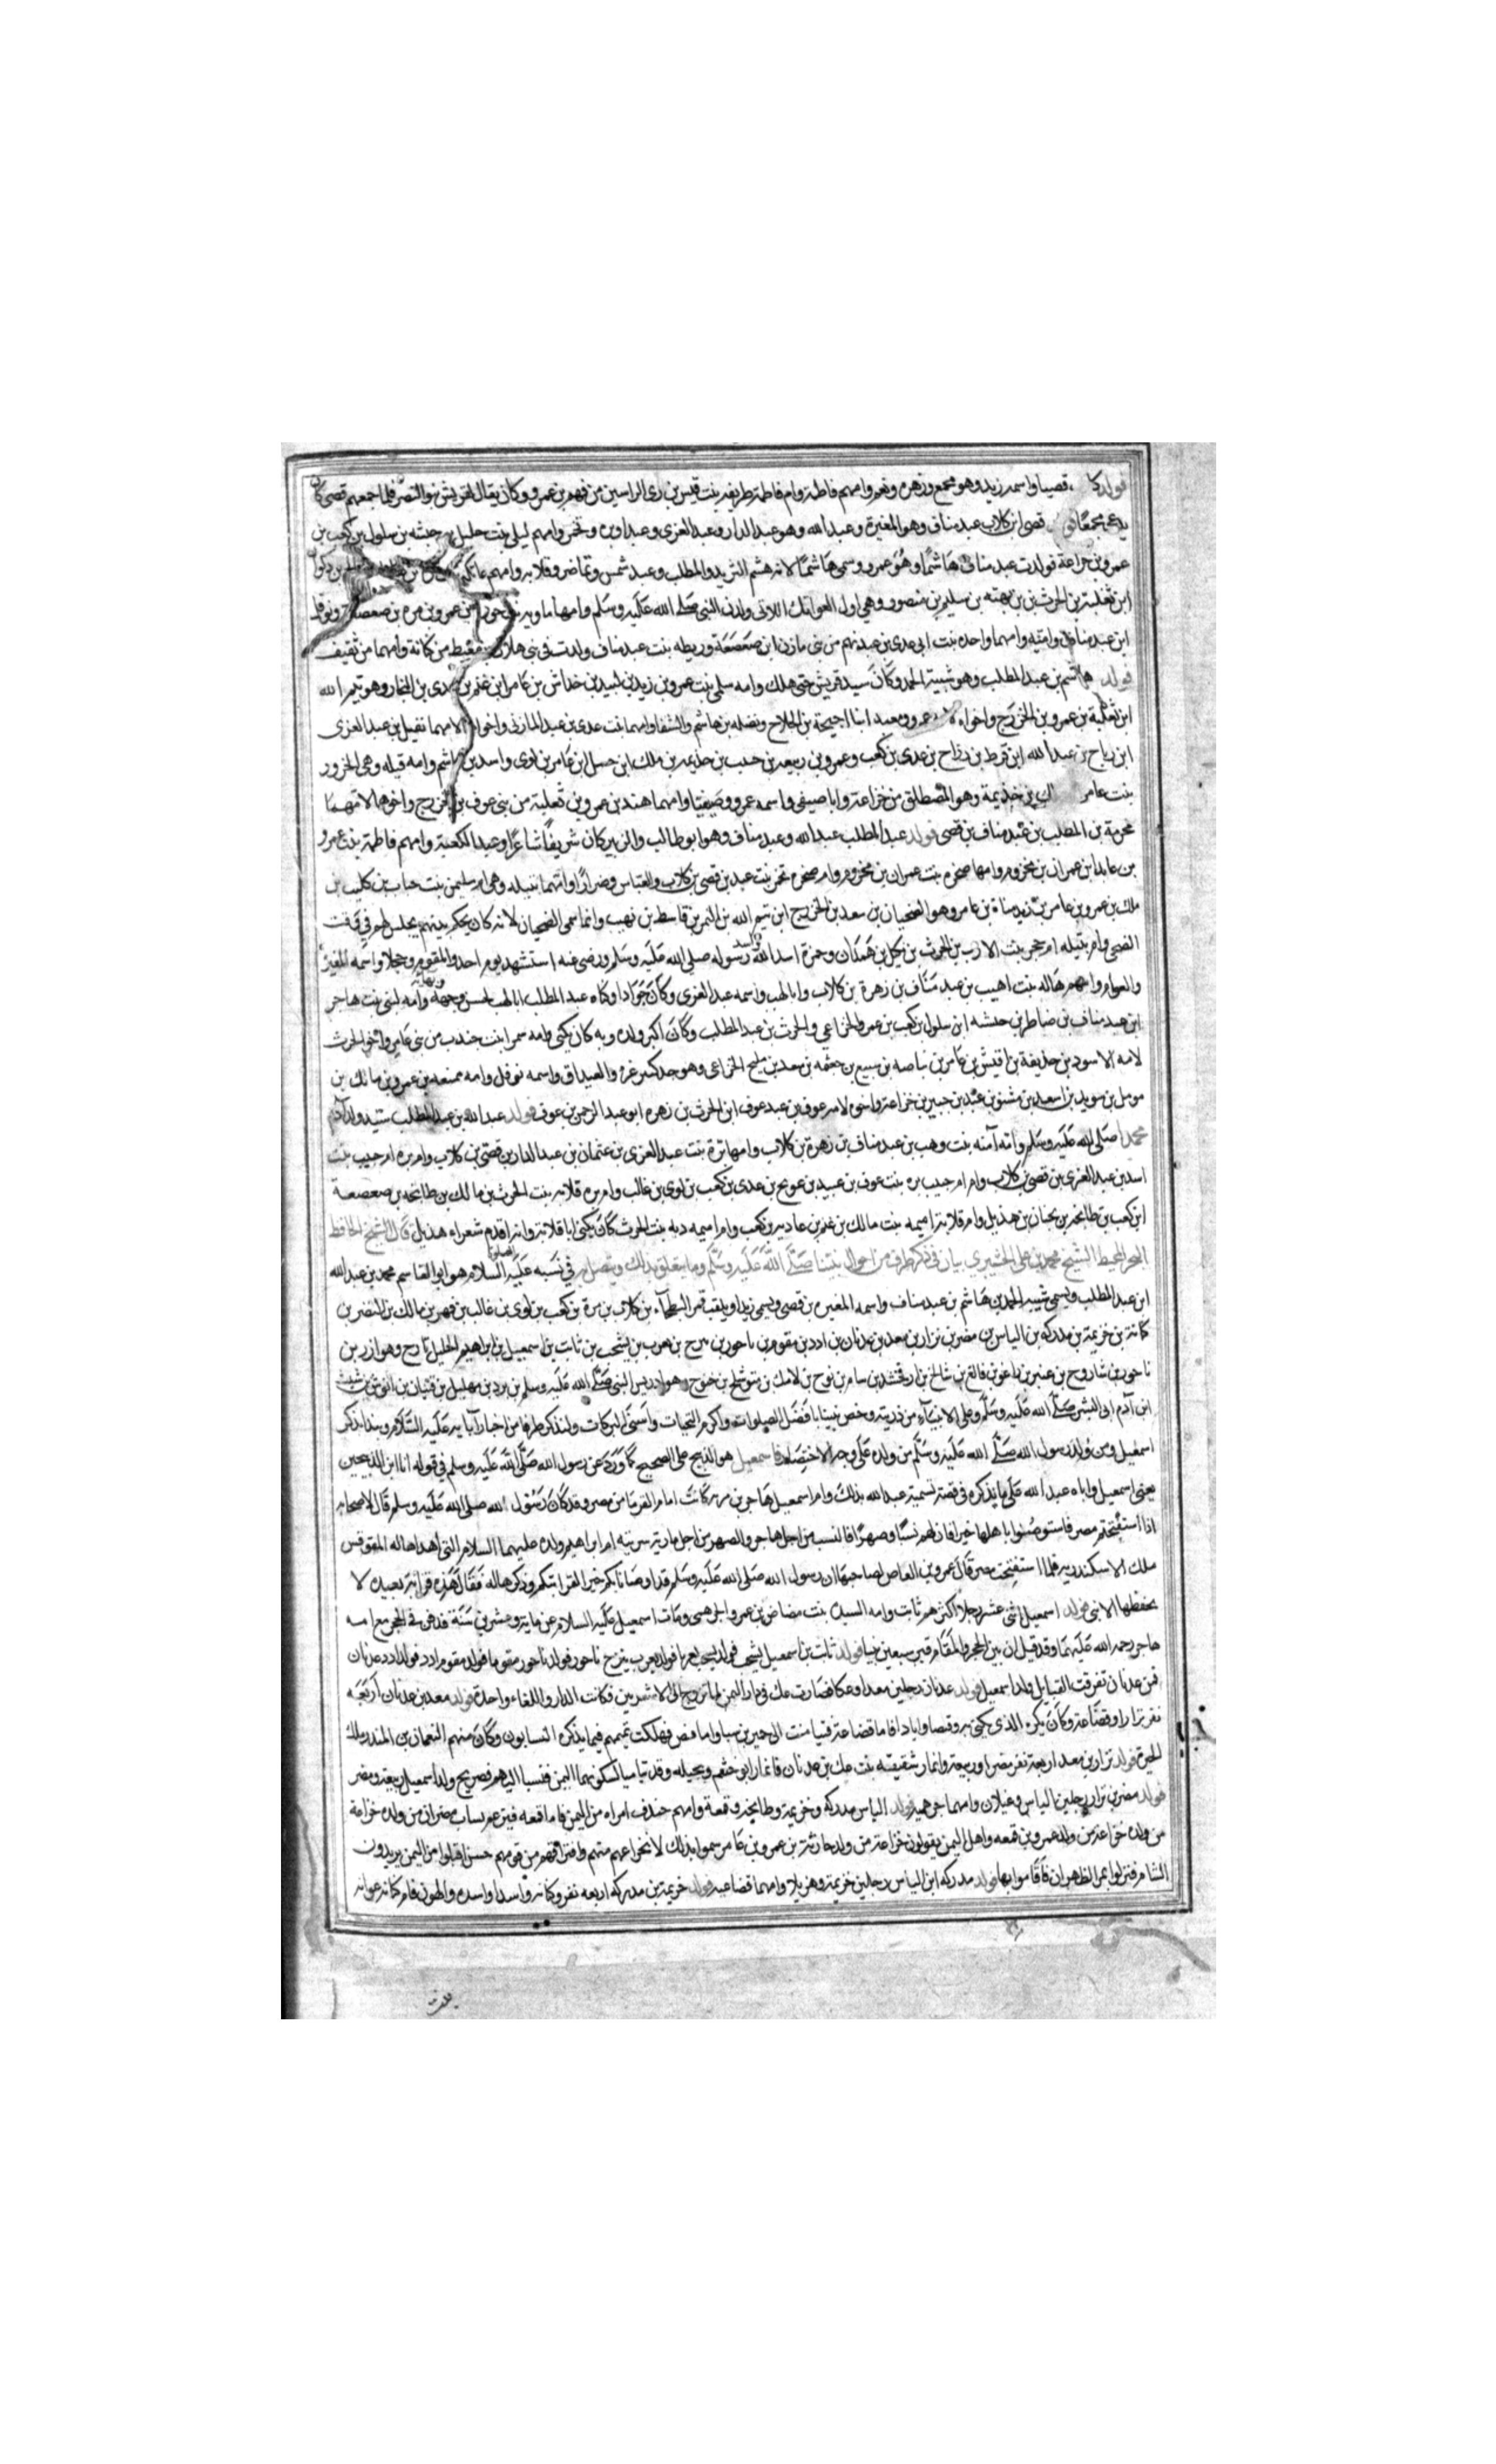 قصيا واسمه زيد وهو مجمع وزهرة ونعم وامهم فاطمة وام فاطمة طريفه بنت قيس بن ذى الراسين من فهم بن عمرو وكان يقال لقريش بنو النضر فلما جمعهم قصى كان
يدعى مجمعا قصى ابن كلاب عبد مناف وهو المغيرة وعبد الله وهو عبد الدار وعبد العزى وعبدا وبره وتخمر وامهم ليلى بنت حليل بن حبشه بن سلول بن كعب بن
عمرو بن خزاعة فولدت عبد مناف هاشما وهو عمرو وسمى هاشما لانه هشم الثريد والمطلب وعبد شمس وتماضر وقلابه وامهم عاتكه
ابن ثعلبة بن الحرث بن بهثه بن سليم بن منصور وهى اول العواتك اللاتى ولدن النبى صلى الله عليه وسلم وامها ماويه بن عمرو بن مره بن صعصعه ونوفل
ابن عبد مناف وامته وامهما واحده بنت ابى عدى بن عبد نهم من بنى مازن ابن صعصعة وريطه بنت عبد مناف ولدت فى بنى هلال من كنانة وامهما من ثقيف
فولد هاشم بن عبد المطلب وهو شيبة الحمد وكان سيد قريش حتى هلك وامه سلمى بنت عمرو بن زيد بن لبيد بن خداش بن عامر ابن غنم بن عدى بن النجار وهو تيم الله
ابن ثعلبة بن عمرو بن الخزرج واخواه عمرو ومعبد ابنا احيحة بن الجلاح ونضله بن هاشم والشفا وامهما بنت عدى بن عبد المازنى واخوا الامهما نفيل بن عبد العزى
ابن رياح بن عبد الله ابن قرط بن رزاح بن عدى بن كعب وعمرو بن ربيعه بن حبيب بن خذيمه بن ملك ابن حسل ابن عامر بن لوى واسد بن هاشم وامه قيله وهى الخزور
بنت عامر بن خذيمة وهو المصطلق من خزاعة وابا صيفى واسمه عمرو وصيفيا وامهما هند بن عمرو بن ثعلبة من بنى عوف بن الخزرج واخوها لامهما
مخرمة بن المطلب بن عبد مناف بن قصى فولد عبد المطلب عبد الله وعبد مناف وهو ابو طالب والزبير كان شريفا شاعرا وعبد الكعبة وامهم فاطمة بنت عمرو
بن عابد ابن عمران بن مخزوم وامها صخره بنت عمران بن مخزوم وام صخره تخمر بنت عبد بن قصى بن كلاب والعباس وضرارا وامهما نتيله وهى ام سليمن بنت حباب بن كليب بن
ملك بن عمرو بن عامر بن زيد مناة بن عامر وهو الضحيان بن سعد بن الخزرج ابن تيم الله بن النمر بن قاسط بن نهيب وانما سمى الضحيان لانه كان يحكم بينهم يجلس لهم فى وقت
الضحى وام نتيله ام حجر بنت الارب بن الحرث بن بكيل بن همدان وحمزة اسد الله واسد رسوله صلى الله عليه وسلم ورضى عنه استشهد يوم احد والمقوم وحجلا واسمه المغيرة
والعوام وامهم هاله بنت اهيب بن عبد مناف بن زهرة بن كلاب وابا لهب واسمه عبد العزى وكان جوادا وكناه عبد المطلب ابا لهب لحسن وجهه وبهائه وامه لبنى بنت هاجر
ابن عبد مناف بن ضاطر بن حبشه ابن سلول بن كعب بن عمرو الخزاعي والحرث بن عبد المطلب وكان اكبر ولده وبه كان يكنى وامه سمرا بنت جندب من بنى عامر واخو الحرث
لامه الاسود بن حذيفة بن اقيش بن عامر بن بياضه بن سبيع بن جعثمه بن سعد بن مليح الخزاعى وهو جد كثير عزه والغيداق واسمه نوفل وامه ممنعه بن عمرو بن مالك بن
مومل بن سويد بن اسعد بن مشنو بن عبد بن حبير بن خزاعة واخوه لامه عوف بن عبد عوف ابن الحرث بن زهره ابو عبد الرحمن بن عوف فولد عبد الله بن عبد المطلب سيد ولد آدم
محمدا صلى الله عليه وسلم وامه آمنه بنت وهب بن عبد مناف بن زهرة بن كلاب وامها برة بنت عبد العزى بن عثمان بن عبد الدار بن قصى بن كلاب وام بره ام حبيب بنت
اسد بن عبد العزى بن قصى بن كلاب وام ام حبيب بره بنت عوف بن عبيد بن عويج بن عدى بن كعب بن لوى بن غالب وام بره قلابه بنت الحرث بن مالك بن طابخه بن صعصعة
ابن كعب بن طابخه بن لحيان بن هذيل وام قلابة اميمه بنت مالك بن غنم بن عاديه بن كعب وام اميمه دبه بنت الحرث كان يكنى ابا قلابة وانه اقدم شعراء هذيل قال الشيخ الحافظ
البحر المحيط الشيخ محمد بن على القشيري بيان فى ذكر طرف من احوال نبينا صلى الله عليه وسلم وما يتعلق بذلك فى نسبه عليه السلام هو ابو القاسم محمد بن عبد الله
ابن عبد المطلب ويسمى شيبه الحمد بن هاشم بن عبد مناف واسمه المغيره بن قصى ويسمى زيدا ويلقب قمر البطحآء بن كلاب بن مرة بن كعب بن لوى بن غالب بن فهر بن مالك بن النضر بن
كنانة بن خزيمة بن مدركه بن الياس بن مضر بن نزار بن معد بن عدنان بن ادد بن مقوم بن ناحور بن تيرح بن يعرب بن يشجب بن ثابت بن اسمعيل بن ابراهيم الخليل تارح وهو ازر بن
ناحور بن شاروح بن عنبر بن داعو بن فالغ بن شالخ بن ارفخشد بن سام بن نوح بن لامك بن متوشلح بن خنوخ وهو ادريس النبى صلى الله عليه وسلم بن يرد بن مهليل بن قينان بن انوش بن شيث
ابن آدم ابى البشر صلى الله عليه وسلم وعلى الانبيآء من ذريته وخص نبينا بافضل الصلوات واكرم التحيات واسنى البركات ولنذكر طرفا من اخبار آبايه عليه السلام ونبدا بذكر
اسمعيل ومن ولد رسول الله صلى الله عليه وسلم من ولده على وجه الاختصار فاسمعيل هو الذبيح على الصحيح كما ورد عن رسول الله صلى الله عليه وسلم فى قوله انا ابن الذبيحين
يعنى اسمعيل واباه عبد الله على ما يذكره فى قصة تسمية عبد الله بذلك وام اسمعيل هاجر بن كانت امام الفرما من مصر وقد كان رسول الله صلى الله عليه وسلم قال لاصحابه
اذا استفتحتم مصر فاستوصوا باهلها خيرا فان لهم نسبا وصهرا فالنسب من اجل هاجر والصهر من اجل مارية سريته ام ابراهيم ولده عليهما السلام التى أهداها له المقوقس
ملك الاسكندريه فلما استفتحت مصر قال عمرو بن العاص لصاحبها ان رسول الله صلى الله عليه وسلم قد اوصانا بكم خير القرابتكم وذكرها له فقال هذه قرابة بعيده لا
يحفظها الا نبى فولد اسمعيل اثنى عشر رجلا اكثرهم ثابت وامه السيده بنت مضاض بن عمرو الجرهمى ومات اسمعيل عليه السلام عن مايه وعشرين سنة فدفن فى الحجر مع امه
هاجر رحمه الله عليهما وقد قيل ان بين الحجر والمقام قبر سبعين نبيا فولد ثابت بن اسمعيل يشجب فولد يشجب يعربا فولد يعرب تيرح ناحور فولد ناحور مقوما فولد مقوم ادد فولد ادد عدنان
فمن عدنان تفرقت القبايل ولد اسمعيل فولد عدنان رجلين معدا وعكا فصارت عك فى دار اليمن لما تزوج الى الاشعريين فكانت الدار واللغة واحدة فولد معد بن عدنان اربعة
نفر نزارا وقضاعة وكان بكره الذى يكنى به وقنصا وايادا فاما قضاعة فتيامنت الى حمير بن سبا واما قنص فهلكت بقيتهم فيما يذكره النسابون وكان منهم النعمان بن المنذر ملك
الحيرة فولد نزار بن معد اربعة نفر مضر وربيعة وانمار شقيقته بنت عك بن عدنان فانمار ابو خثعم وبجيله وقد تيامنا لسكونهما اليمن فنسبا اليها فصريح ولد اسمعيل ربيعه ومضر
فولد مضر بن نزار رجلين الياس وعيلان وامهما جرهميه فولد الياس مدركه وخزيمة وطابخه وقمعة وامهم خندف امراه من اليمن فاما قمعه فيزعم نساب مضر ان من ولده خزاعة
من ولده خزاعة من ولد عمرو بن قمعه واهل اليمن يقولون خزاعة من ولد حارثة بن عمرو بن عامر سموا بذلك لانخزاعهم منهم وافتراقهم من قومهم حين اقبلوا من اليمن يريدون
الشام فنزلوا بمر الظهران فاقاموا بها فولد مدركه ابن الياس رجلين خزيمة وهذيلا وامهما قضاعيه فولد خزيمة بن مدركه اربعه نفر وكنانه واسدا واسده والهون فام كنانه عوانه